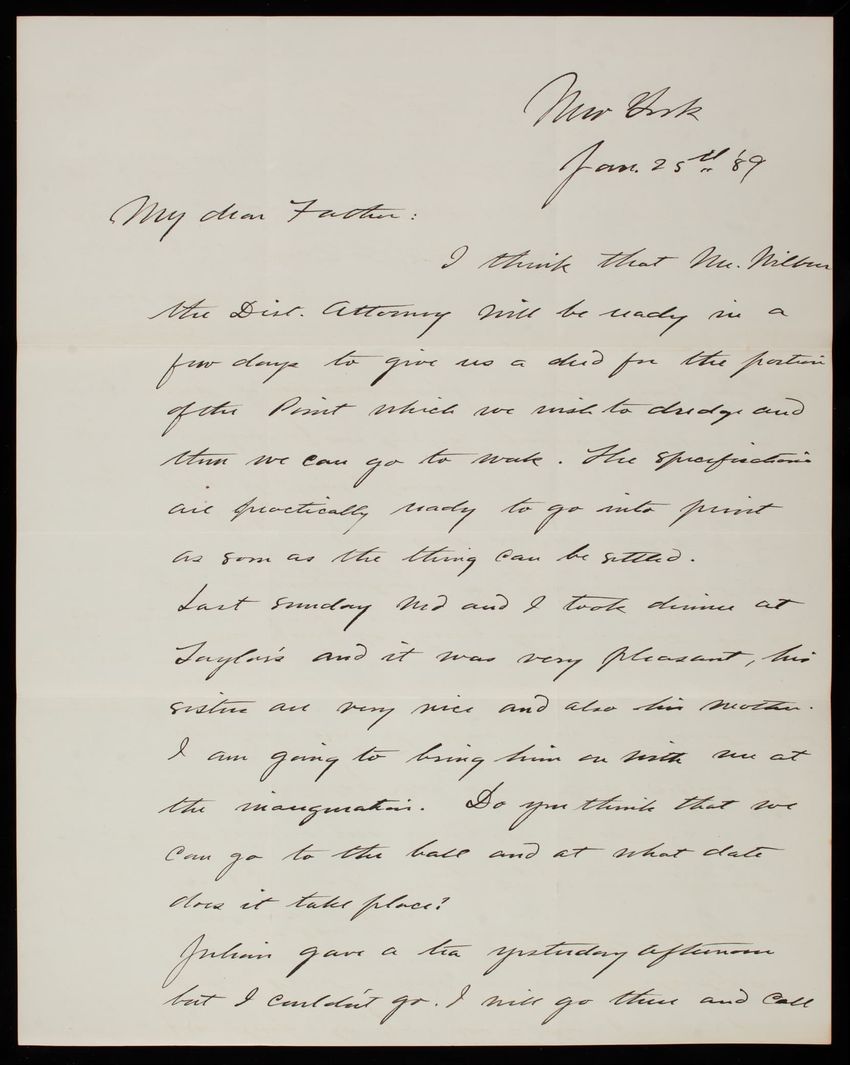 New York
Jan. 25th '89
My dear Father:
I think that Mr. Wilbur
the Dist. Attorney will be ready in a
few days to give us a deed for the portion
of the Point which we wish to dredge and
then we can go to work. The specifications
are practically ready to go into print
as soon as the thing can be settled.
Last Sunday Ned and I took dinner at
Taylor's and it was very pleasant, his
sisters are very nice and also his mother.
I am going to bring him on with me at
the inauguration. Do you think that we
can go to the ball and at what date
does it take place?
Julian gave a tea yesterday afternoon
but I couldn't go. I will go there and call